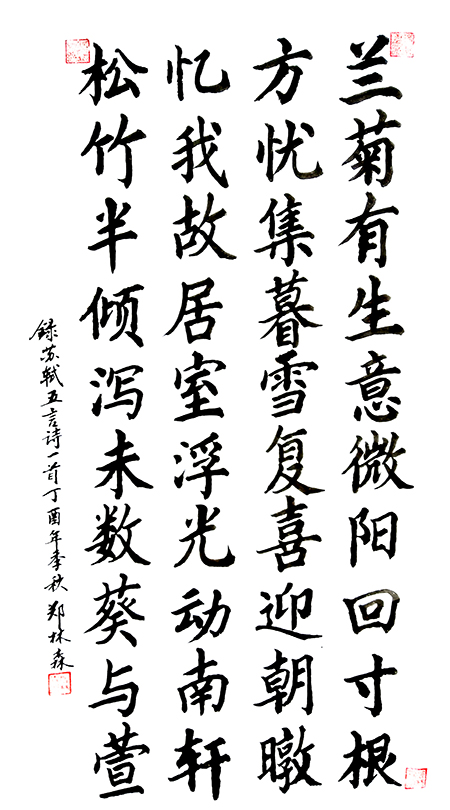 兰菊有生意微阳回寸根
方忧集暮雪复喜迎朝暾
忆我故居室浮光动南轩
松竹半倾泻未数葵与萱
録苏轼五言诗一首丁酉年季秋郑林森